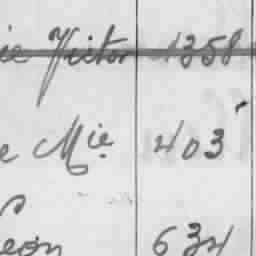 ie Victor 1358
e Mie 403
eon 634